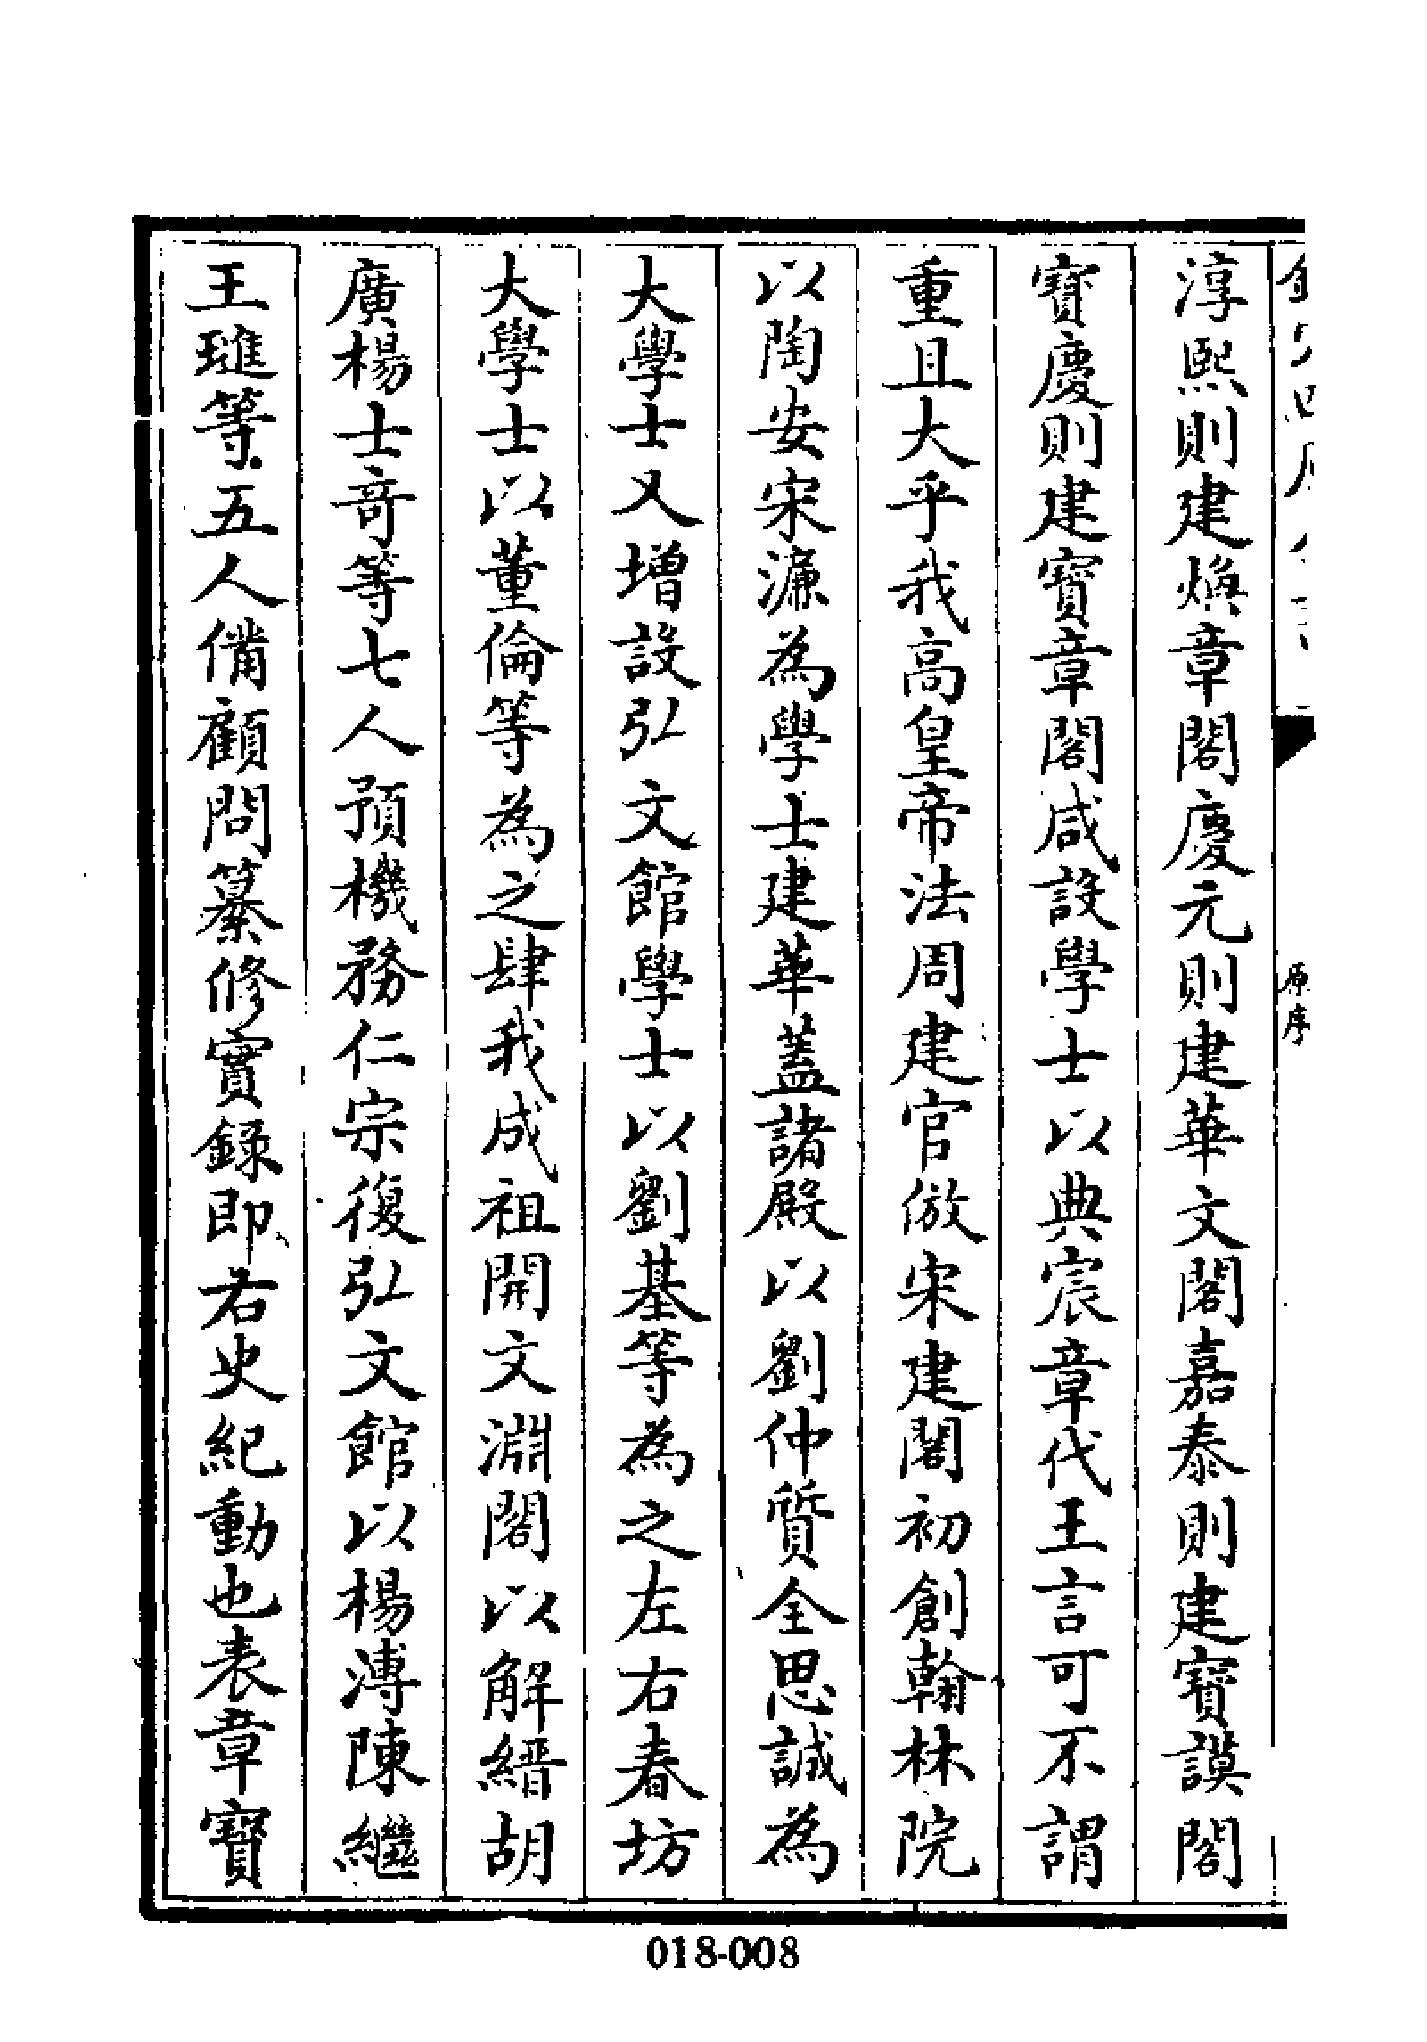 原序
淳熙則建煥章閣慶元則建華文閣嘉泰則建寶謨閣
寶慶則建寶章閣咸設學士以典宸章代王言可不謂
重且大乎我高皇帝法周建官倣宋建閣初創翰林院
以陶安宋濂為學士建華蓋諸殿以劉仲質全思誠為
大學士又增設弘文館學士以劉基等為之左右春坊
大學士以董倫等為之肆我成祖開文淵閣以解縉胡
廣楊士奇等七人預機務仁宗復弘文館以楊溥陳繼
王璡等五人備顧問纂修實錄即右史紀動也表章寶
018-008